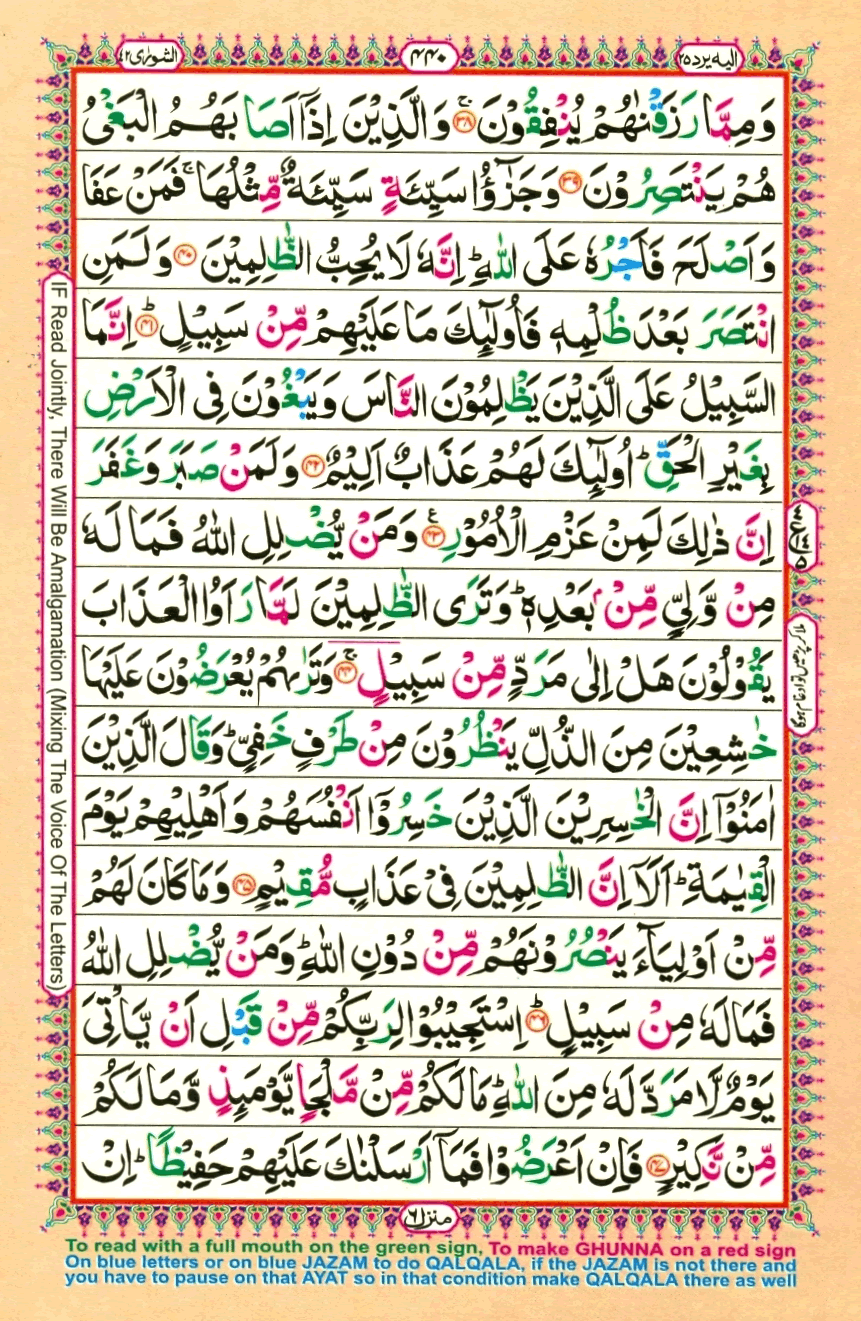 الشورٰى ٤٢
٤٤٠
اليه يرد ٢٥
وَمِمَّا رَزَقْنٰهُمْ يُنْفِقُوْنَ ۚ ﴿٣٨﴾ وَالَّذِيْنَ اِذَاۤ اَصَابَهُمُ الْبَغْىُ
هُمْ يَنْتَصِرُوْنَ ﴿٣٩﴾ وَجَزٰٓؤُا سَيِّئَةٍ سَيِّئَةٌ مِّثْلُهَا ۚ فَمَنْ عَفَا
وَاَصْلَحَ فَاَجْرُهٗ عَلَى اللّٰهِ ؕ اِنَّهٗ لَا يُحِبُّ الظّٰلِمِيْنَ ﴿٤٠﴾ وَلَمَنِ
انْتَصَرَ بَعْدَ ظُلْمِهٖ فَاُولٰٓئِكَ مَا عَلَيْهِمْ مِّنْ سَبِيْلٍ ؕ ﴿٤١﴾ اِنَّمَا
السَّبِيْلُ عَلَى الَّذِيْنَ يَظْلِمُوْنَ النَّاسَ وَيَبْغُوْنَ فِى الْاَرْضِ
بِغَيْرِ الْحَقِّ ؕ اُولٰٓئِكَ لَهُمْ عَذَابٌ اَلِيْمٌ ﴿٤٢﴾ وَلَمَنْ صَبَرَ وَغَفَرَ
اِنَّ ذٰلِكَ لَمِنْ عَزْمِ الْاُمُوْرِ ﴿٤٣﴾ ع وَمَنْ يُّضْلِلِ اللّٰهُ فَمَا لَهٗ
مِنْ وَّلِىٍّ مِّنْۢ بَعْدِهٖ ؕ وَتَرَى الظّٰلِمِيْنَ لَمَّا رَاَوُا الْعَذَابَ
يَقُوْلُوْنَ هَلْ اِلٰى مَرَدٍّ مِّنْ سَبِيْلٍ ۚ ﴿٤٤﴾ وَتَرٰىهُمْ يُعْرَضُوْنَ عَلَيْهَا
خٰشِعِيْنَ مِنَ الذُّلِّ يَنْظُرُوْنَ مِنْ طَرْفٍ خَفِىٍّ ؕ وَقَالَ الَّذِيْنَ
اٰمَنُوْۤا اِنَّ الْخٰسِرِيْنَ الَّذِيْنَ خَسِرُوْۤا اَنْفُسَهُمْ وَاَهْلِيْهِمْ يَوْمَ
الْقِيٰمَةِ ؕ اَلَاۤ اِنَّ الظّٰلِمِيْنَ فِىْ عَذَابٍ مُّقِيْمٍ ﴿٤٥﴾ وَمَا كَانَ لَهُمْ
مِّنْ اَوْلِيَآءَ يَنْصُرُوْنَهُمْ مِّنْ دُوْنِ اللّٰهِ ؕ وَمَنْ يُّضْلِلِ اللّٰهُ
فَمَا لَهٗ مِنْ سَبِيْلٍ ؕ ﴿٤٦﴾ اِسْتَجِيْبُوْا لِرَبِّكُمْ مِّنْ قَبْلِ اَنْ يَّاْتِىَ
يَوْمٌ لَّا مَرَدَّ لَهٗ مِنَ اللّٰهِ ؕ مَا لَكُمْ مِّنْ مَّلْجَاٍ يَّوْمَئِذٍ وَّمَا لَكُمْ
مِّنْ نَّكِيْرٍ ﴿٤٧﴾ فَاِنْ اَعْرَضُوْا فَمَاۤ اَرْسَلْنٰكَ عَلَيْهِمْ حَفِيْظًا ؕ اِنْ
IF Read Jointly, There Will Be Amalgamation (Mixing The Voice Of The Letters)
ملا کر پڑھیں تو ادغام ہوگا
منزل ٦
To read with a full mouth on the green sign, To make GHUNNA on a red sign
On blue letters or on blue JAZAM to do QALQALA, if the JAZAM is not there and
you have to pause on that AYAT so in that condition make QALQALA there as well